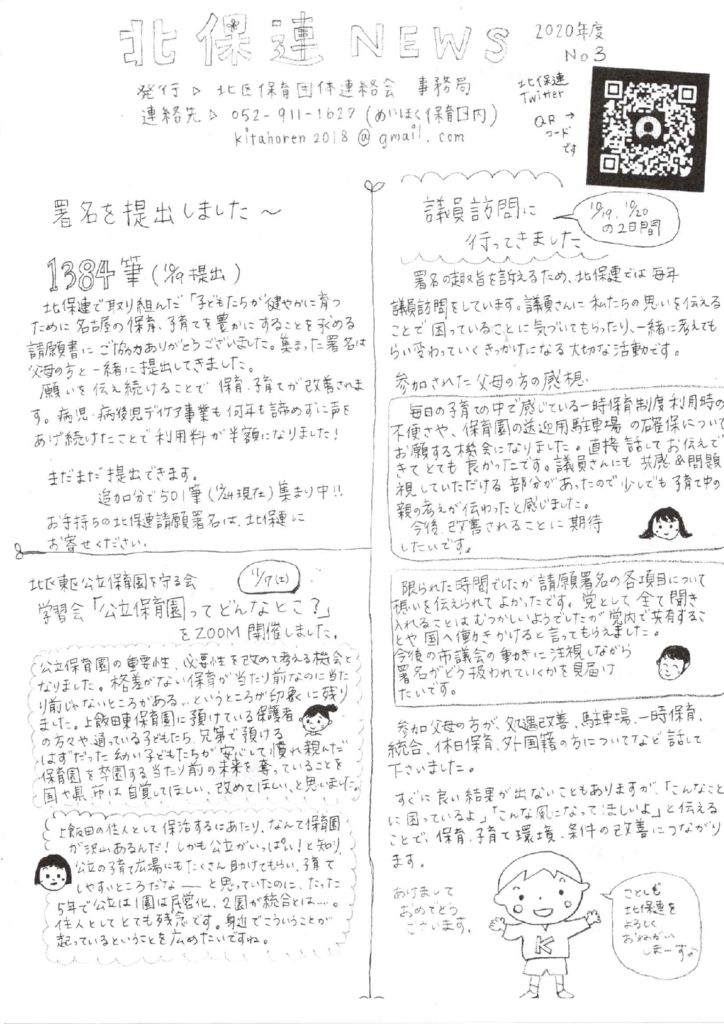 北保連 NEWS
2020年度
No3
発行 ▷ 北区保育団体連絡会 事務局
連絡先 ▷ 052-911-1627 (めいほく保育園内)
kitahoren2018@gmail.com
北保連
Twitter
QR →
コード
です
署名を提出しました〜
1384筆 (10/19提出)
北保連で取り組んだ「子どもたちが健やかに育つ
ために名古屋の保育、子育てを豊かにすることを求める
請願書にご協力ありがとうございました。集まった署名は
父母の方と一緒に提出してきました。
願いを伝え続けることで 保育、子育てが改善されま
す。病児・病後児デイケア事業も何年も諦めずに声を
あげ続けたことで利用料が半額になりました!
まだまだ提出できます。
追加分で501筆(11/24現在)集まり中!!
お手持ちの北保連請願署名は、北保連に
お寄せください。
北区東区公立保育園を守る会
11/7(土)
学習会「公立保育園ってどんなとこ?」
をZOOM開催しました。
公立保育園の重要性、必要性を改めて考える機会と
なりました。格差がない保育が当たり前なのに当た
り前じゃないところがある…というところが印象に残り
ました。上飯田東保育園に預けている保護者
の方々や、通っている子どもたち、兄弟で預ける
はずだった幼い子どもたちが安心して慣れ親んだ
保育園を卒園する当たり前の未来を奪っていることを
国や県、市は自覚してほしい、改めてほしい、と思いました。
上飯田の住人として保活するにあたり、なんて保育園
が沢山あるんだ!しかも公立がいっぱい!と知り、
公立の子育て広場にもたくさん助けてもらい、子育て
しやすいところだな――と思っていたのに、たった
5年で公立は1園は民営化、2園が統合とは…。
住人としてとても残念です。身近でこういうことが
起っているということを広めたいですね。
議員訪問に
行ってきました
10/19、10/20
の2日間
署名の趣旨を訴えるため、北保連では毎年
議員訪問をしています。議員さんに私たちの思いを伝える
ことで困っていることに気づいてもらったり、一緒に考えても
らい変わっていくきっかけになる大切な活動です。
参加された父母の方の感想
毎日の子育ての中で感じている一時保育制度利用時の
不便さや、保育園の送迎用駐車場の確保について
お願する機会になりました。直接話してお伝えで
きてとても良かったです。議員さんにも共感&問題
視していただける部分があったので少しでも子育て中の
親の考えが伝わったと感じました。
今後、改善されることに期待
したいです。
限られた時間でしたが請願署名の各項目について
想いを伝えられてよかったです。党として全て聞き
入れることはむつかしいようでしたが党内で共有するこ
とや国へ働きかけると言ってもらえました。
今後の市議会の動きに注視しながら
署名がどう扱われていくかを見届け
たいです。
参加父母の方が、処遇改善、駐車場、一時保育、
統合、休日保育、外国籍の方についてなど話して
下さいました。
すぐに良い結果が出ないこともありますが、「こんなこと
に困っているよ」「こんな風になってほしいよ」と伝える
ことで、保育、子育て環境・条件の改善につながり
ます。
あけまして
おめでとう
ございます。
K
ことしも
北保連を
よろしく
おねがい
しまーす♪